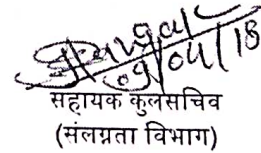 09/04/18
सहायक कुलसचिव
(संलग्नता विभाग)